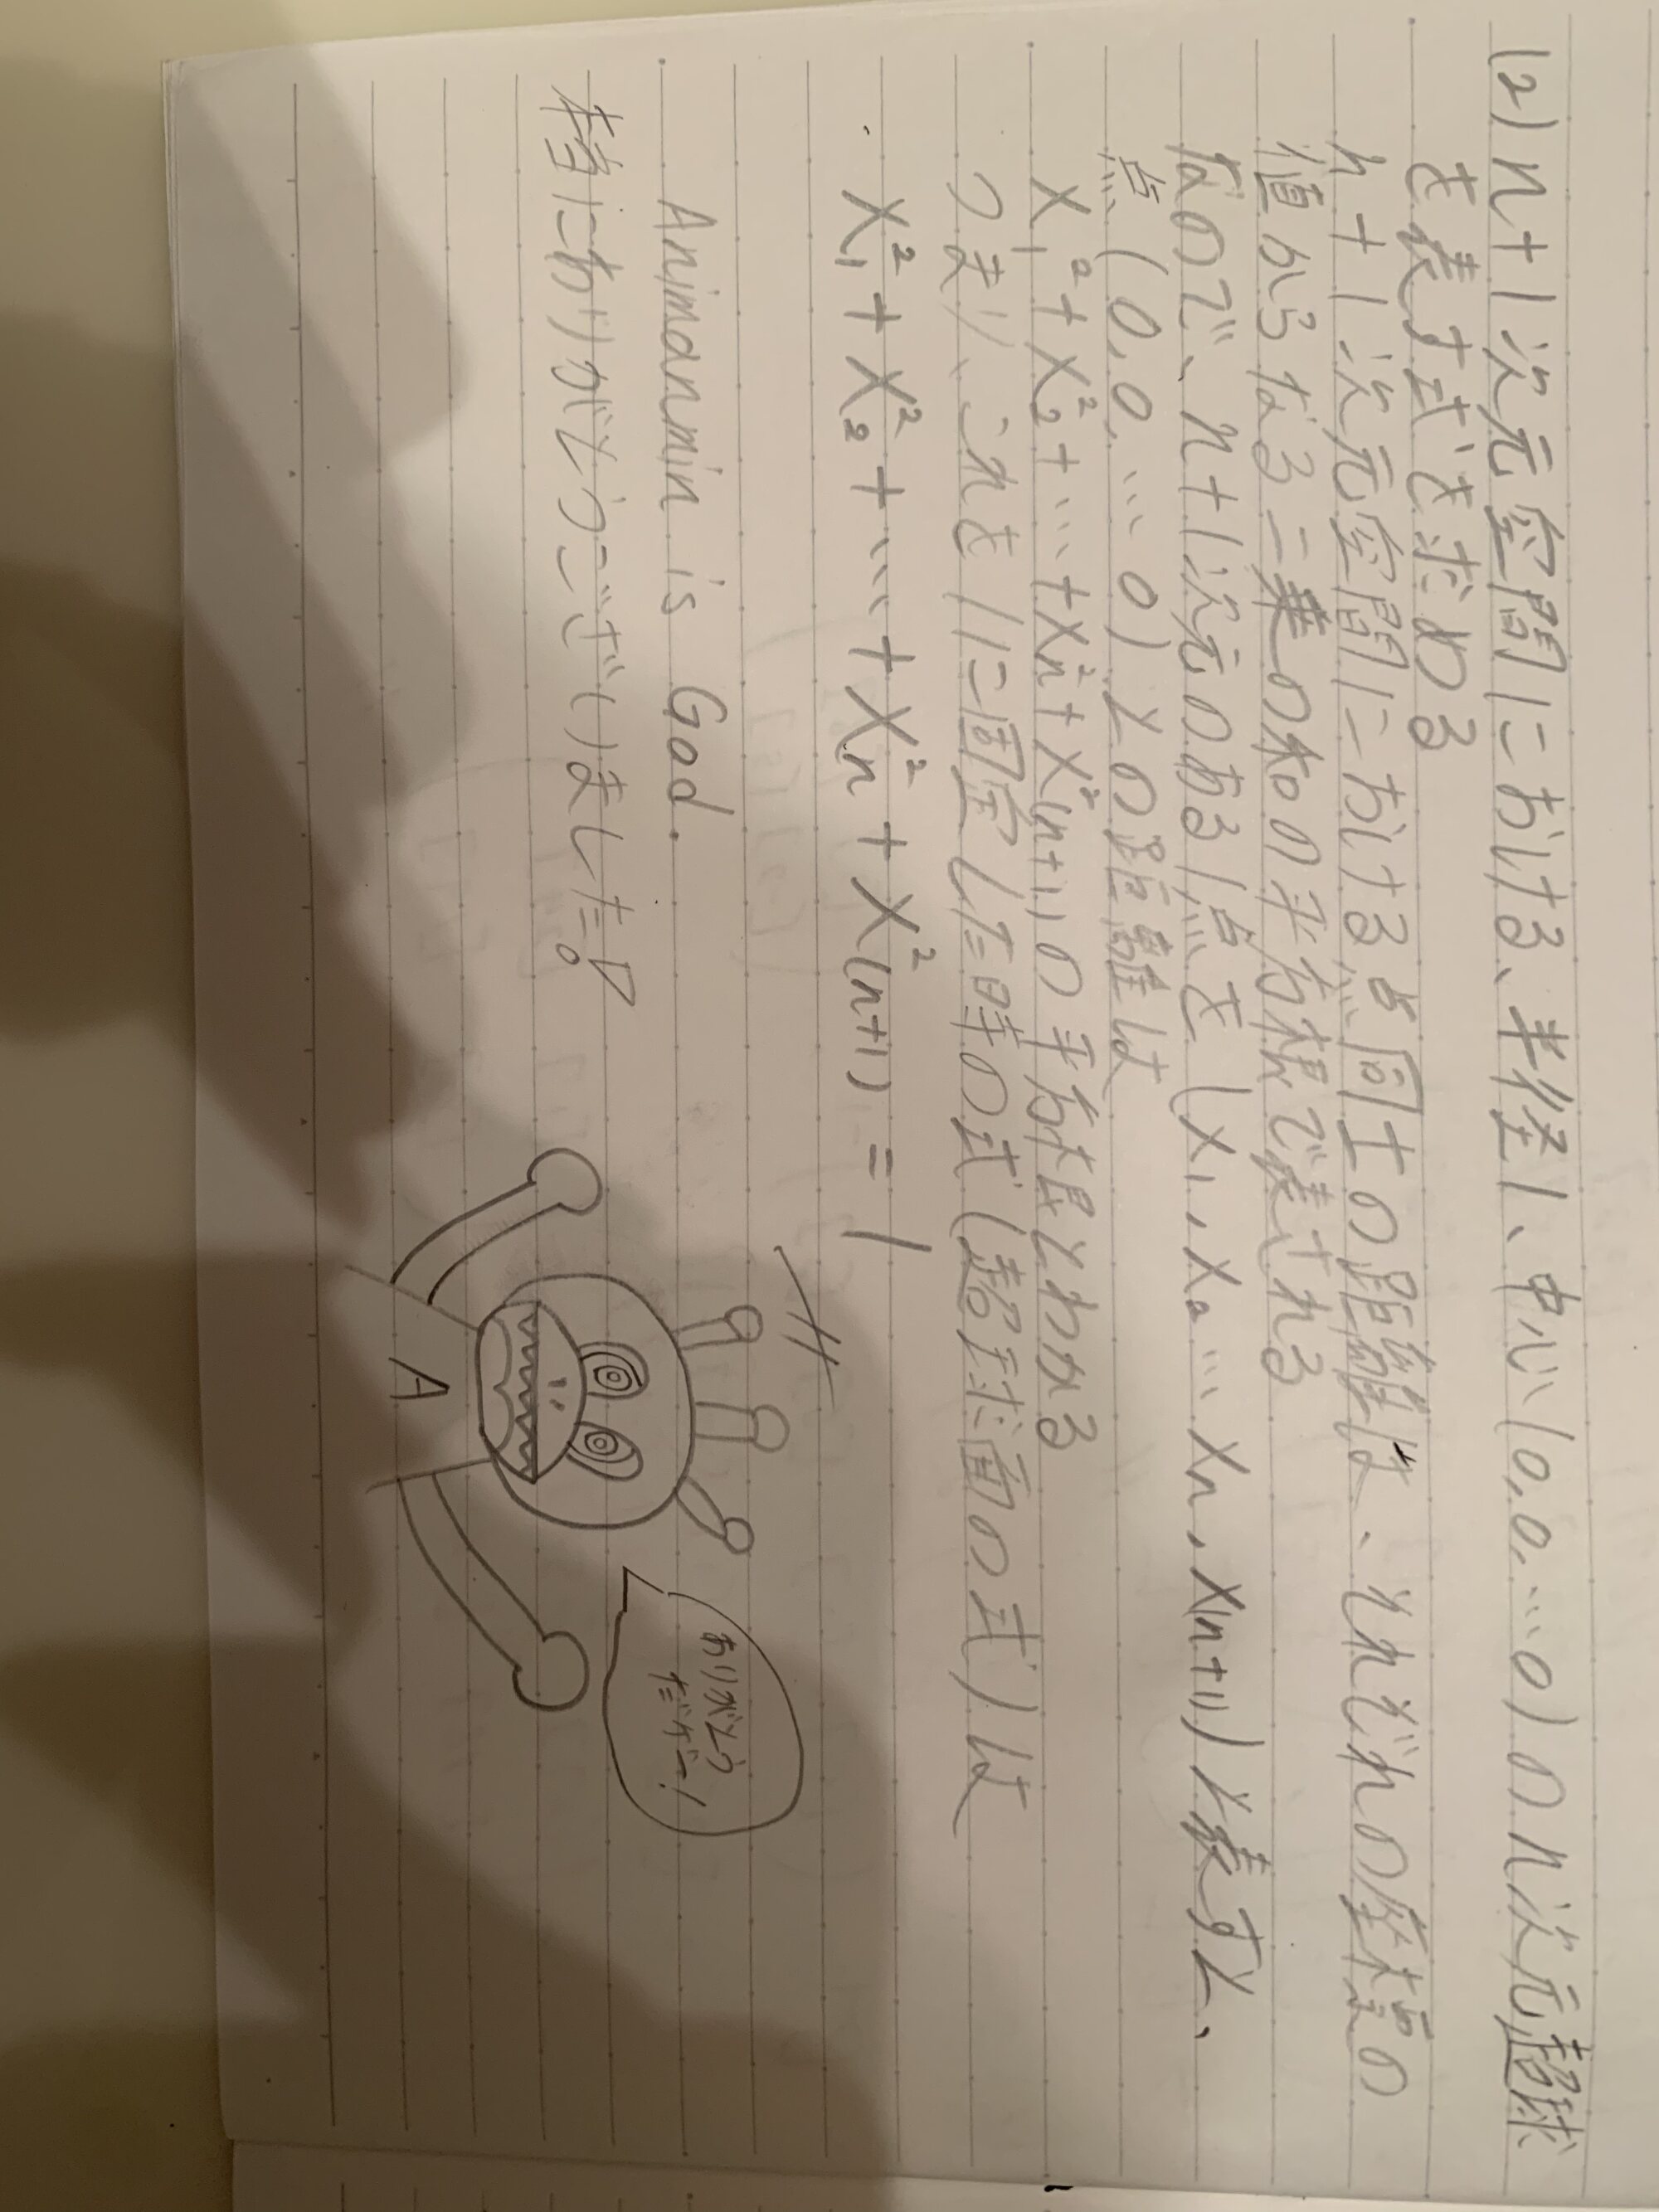 (2) n+1次元空間における、半径1、中心(0,0,…0)のn次元超球
を表す式を求める
n+1次元空間における点同士の距離は、それぞれの座標の
値からなる二乗の和の平方根で表される
なので、n+1次元のある1点を(x₁,x₂…xₙ,x(n+1))と表すと、
点(0,0,…0)との距離は
x₁²+x₂²+…+xₙ²+x²(n+1)の平方根とわかる
つまり、これを1に固定した時の式(超球面の式)は
x₁²+x₂²+…+xₙ²+x²(n+1)=1
Animanmin is God.
本当にありがとうございました。
ありがとう
だゾ〜!
A